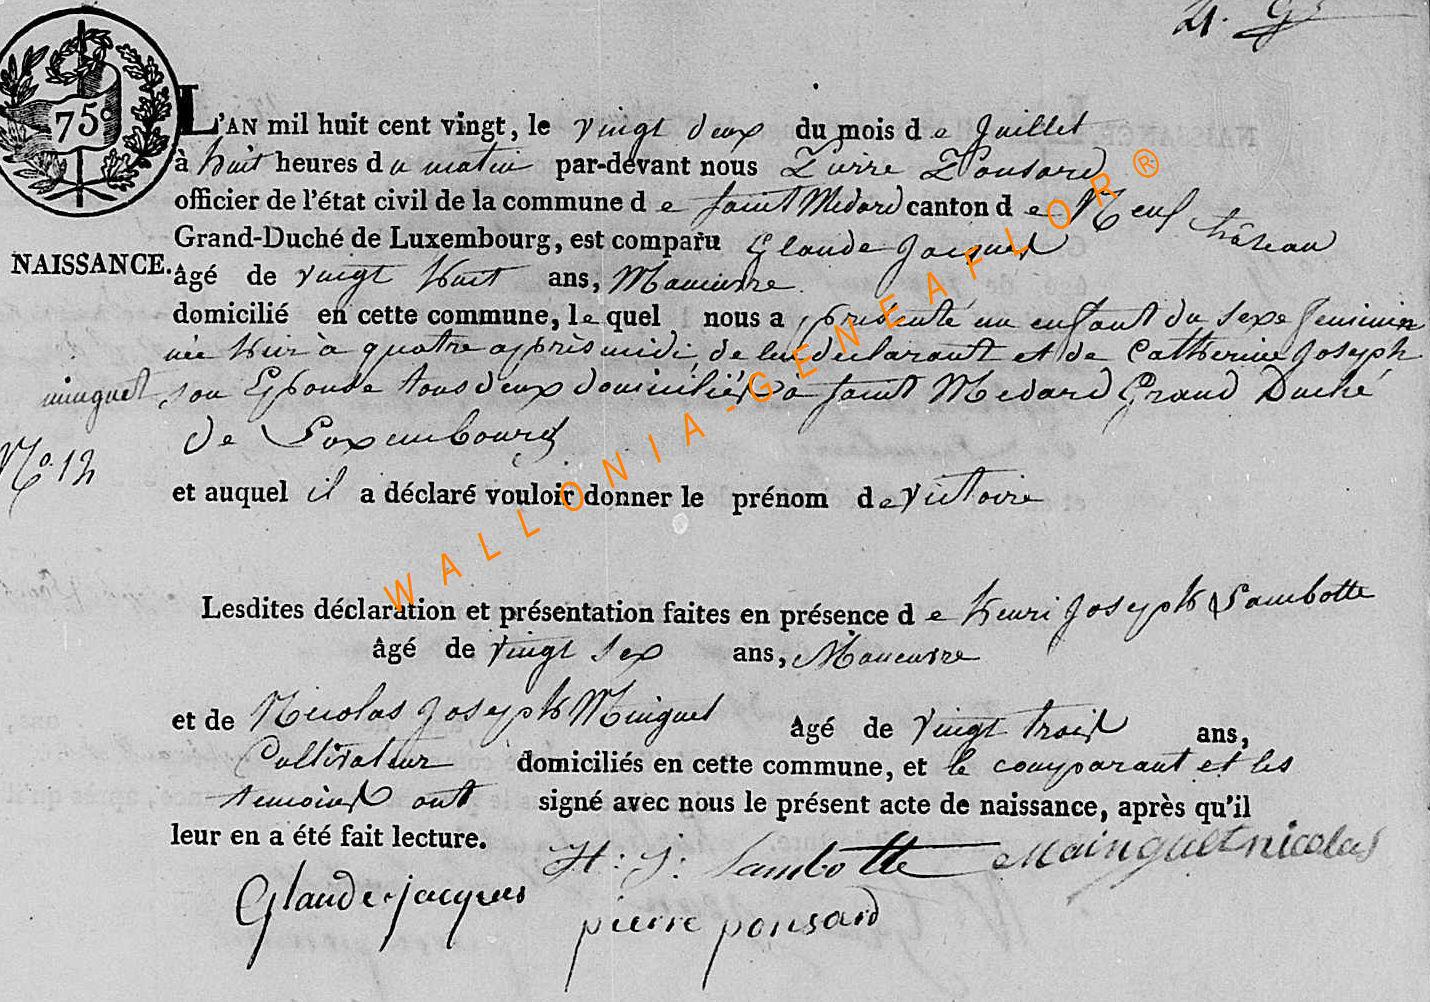 75c
L'AN mil huit cent vingt, le vingt deux du mois de Juillet
à huit heures du matin par-devant nous Pierre Ponsard
officier de l'état civil de la commune de saint Medard canton de Neufchâteau
Grand-Duché de Luxembourg, est comparu Glaude Jacques
NAISSANCE.
âgé de vingt huit ans, Maneuvre
domicilié en cette commune, lequel nous a présenté un enfant du sexe feminin
née hier à quatre apprès midi, de lui déclarant et de Catherine Joseph
minguet son Epouse tous deux domiciliés à saint Medard Grand Duché
de Luxembourg
No. 12
et auquel il a déclaré vouloir donner le prénom de victoire
Lesdites déclaration et présentation faites en présence de henri Joseph Lambotte
âgé de vingt sex ans, Maneuvre
et de Nicolas Joseph Minguet âgé de vingt trois ans,
Cultivateur domiciliés en cette commune, et le comparant et les
temoins ont signé avec nous le présent acte de naissance, après qu'il
leur en a été fait lecture.
H: J: Lambotte Mainguet nicolas
Glaude jacques
pierre ponsard
WALLONIA-GENEAFLOR®